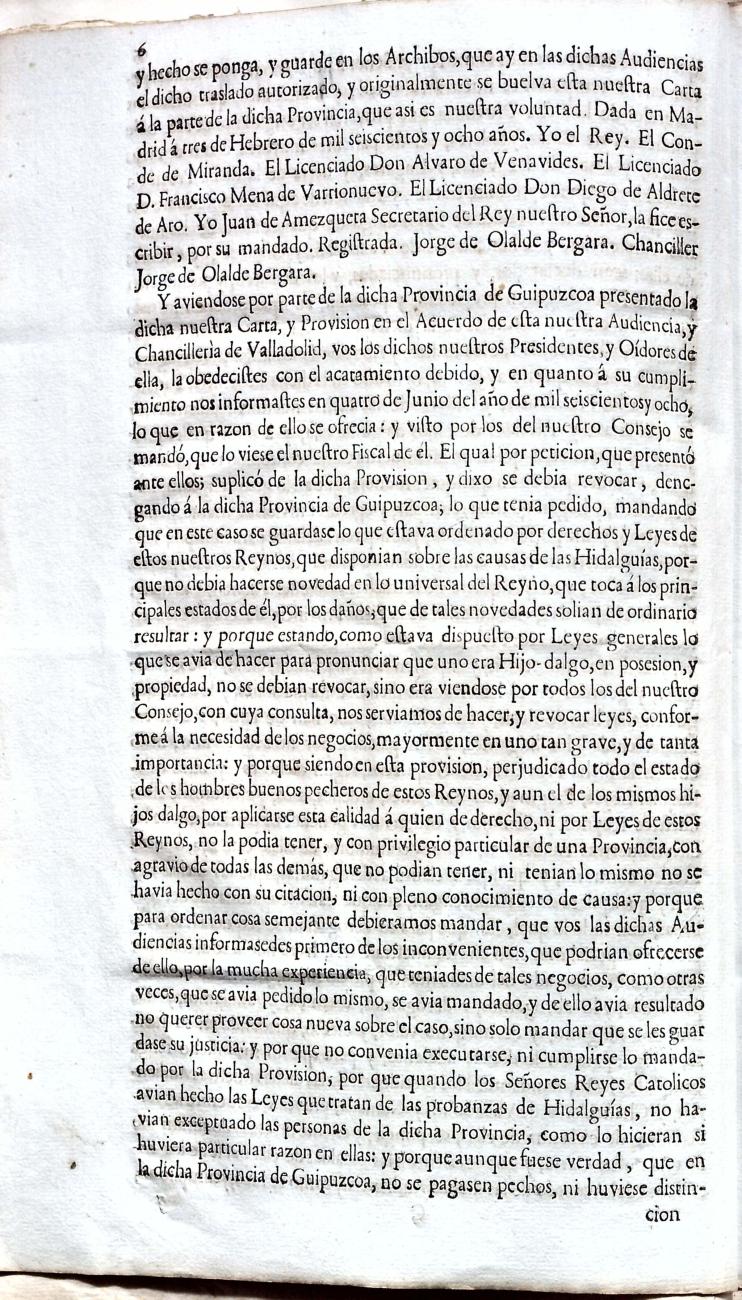 6
y hecho se ponga, y guarde en los Archibos, que ay en las dichas Audiencias
el dicho traslado autorizado, y originalmente se buelva eſta nueſtra Carta
á la parte de la dicha Provincia, que asi es nueſtra voluntad. Dada en Ma-
drid á tres de Hebrero de mil seiscientos y ocho años. Yo el Rey. El Con-
de de Miranda. El Licenciado Don Alvaro de Venavides. El Licenciado
D. Francisco Mena de Varrionuevo. El Licenciado Don Diego de Aldrete
de Aro. Yo Juan de Amezqueta Secretario del Rey nueſtro Señor, la fice es-
cribir, por su mandado. Regiſtrada. Jorge de Olalde Bergara. Chanciller
Jorge de Olalde Bergara.
Y aviendose por parte de la dicha Provincia de Guipuzcoa presentado la
dicha nueſtra Carta, y Provision en el Acuerdo de eſta nueſtra Audiencia, y
Chancilleria de Valladolid, vos los dichos nueſtros Presidentes, y Oídores de
ella, la obedeciſtes con el acatamiento debido, y en quanto á su cumpli-
miento nos informaſtes en quatro de Junio del año de mil seiscientos y ocho,
lo que en razon de ello se ofrecia: y viſto por los del nueſtro Consejo se
mandó, que lo viese el nueſtro Fiscal de él. El qual por peticion, que presentó
ante ellos; suplicó de la dicha Provision, y dixo se debia revocar, dene-
gando á la dicha Provincia de Guipuzcoa; lo que tenia pedido, mandando
que en este caso se guardase lo que eſtava ordenado por derechos y Leyes de
eſtos nueſtros Reynos, que disponian sobre las causas de las Hidalguías, por-
que no debia hacerse novedad en lo universal del Reyno, que toca á los prin-
cipales estados de él, por los daños, que de tales novedades solian de ordinario
resultar: y porque estando, como eſtava dispueſto por Leyes generales lo
que se avia de hacer para pronunciar que uno era Hijo-dalgo, en posesion, y
propiedad, no se debian revocar, sino era viendose por todos los del nueſtro
Consejo, con cuya consulta, nos serviamos de hacer, y revocar leyes, confor-
me á la necesidad de los negocios, mayormente en uno tan grave, y de tanta
importancia: y porque siendo en eſta provision, perjudicado todo el estado
de los hombres buenos pecheros de estos Reynos, y aun el de los mismos hi-
jos dalgo, por aplicarse esta calidad á quien de derecho, ni por Leyes de estos
Reynos, no la podia tener, y con privilegio particular de una Provincia, con
agravio de todas las demás, que no podian tener, ni tenian lo mismo no se
havia hecho con su citacion, ni con pleno conocimiento de causa: y porque
para ordenar cosa semejante debieramos mandar, que vos las dichas Au-
diencias informasedes primero de los inconvenientes, que podrian ofrecerse
de ello, por la mucha experiencia, que teniades de tales negocios, como otras
veces, que se avia pedido lo mismo, se avia mandado, y de ello avia resultado
no querer proveer cosa nueva sobre el caso, sino solo mandar que se les guar
dase su justicia: y por que no convenia executarse, ni cumplirse lo manda-
do por la dicha Provision, por que quando los Señores Reyes Catolicos
avian hecho las Leyes que tratan de las probanzas de Hidalguías, no ha-
vian exceptuado las personas de la dicha Provincia, como lo hicieran si
huviera particular razon en ellas: y porque aunque fuese verdad, que en
la dicha Provincia de Guipuzcoa, no se pagasen pechos, ni huviese distin-
cion